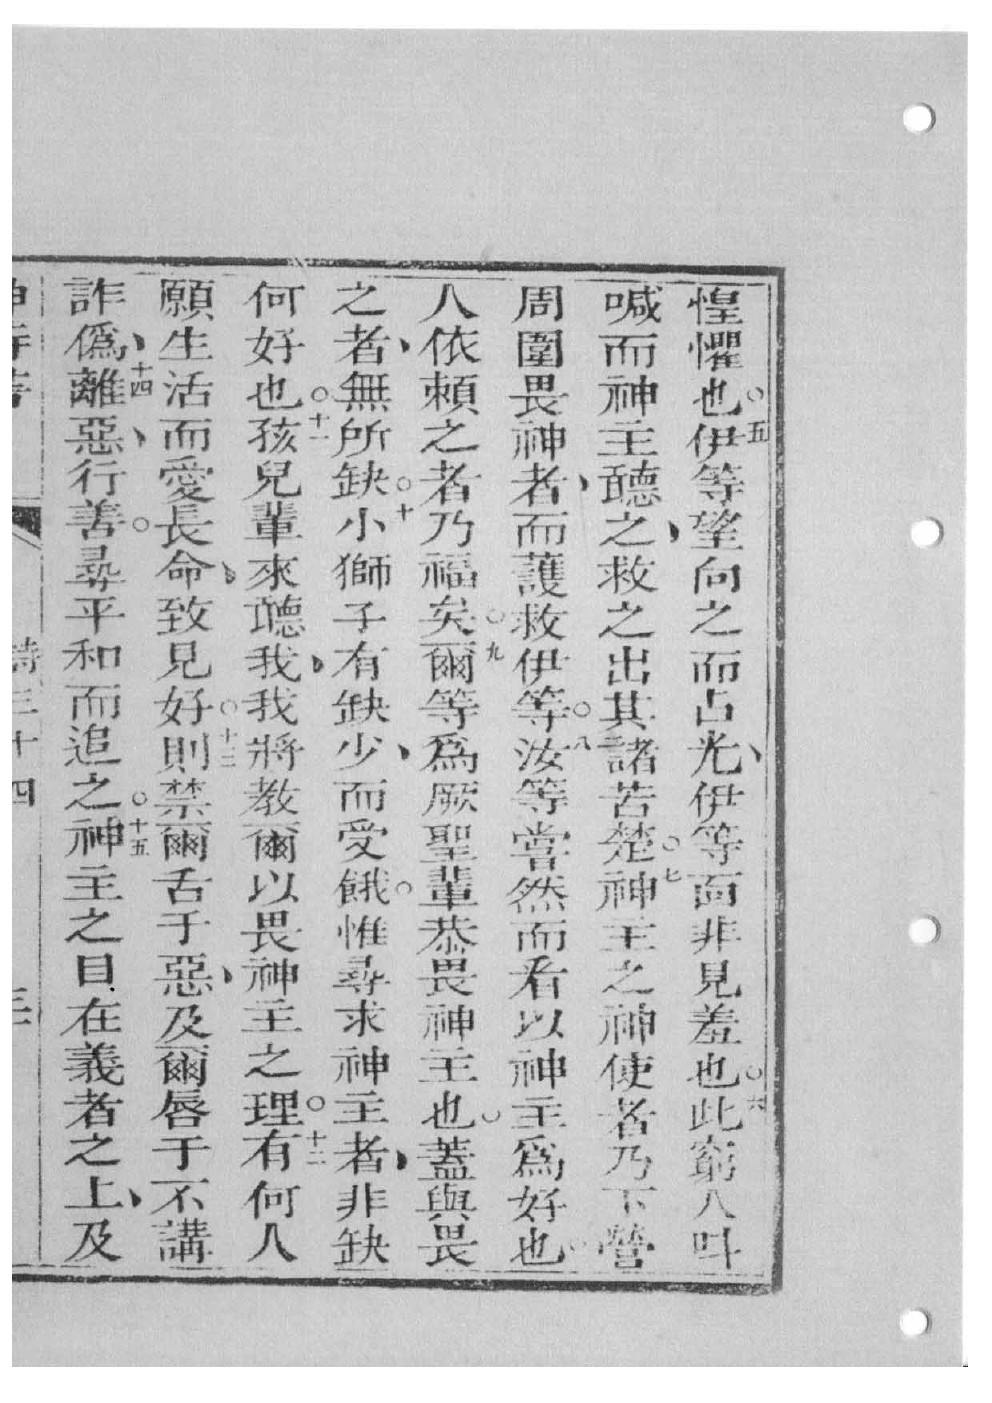 惶懼也○五伊等望向之而占光、伊等面非見羞也○六此窮人叫
喊而神主聽之、救之出其諸苦楚○七神主之神使者乃下營
周圍畏神者、而護救伊等○八汝等嘗然而看以神主為好也○
人依賴之者乃福矣○九爾等為厥聖輩恭畏神主也○蓋與畏
之者、無所缺○十小獅子有缺少、而受餓○惟尋求神主者、非缺
何好也○十一孩兒輩來聽我、我將教爾以畏神主之理○十二有何人
願生活而愛長命、致見好○十三則禁爾舌于惡、及爾唇于不講
詐偽、十四離惡、行善○尋平和而追之○十五神主之目在義者之上、及
詩三十四